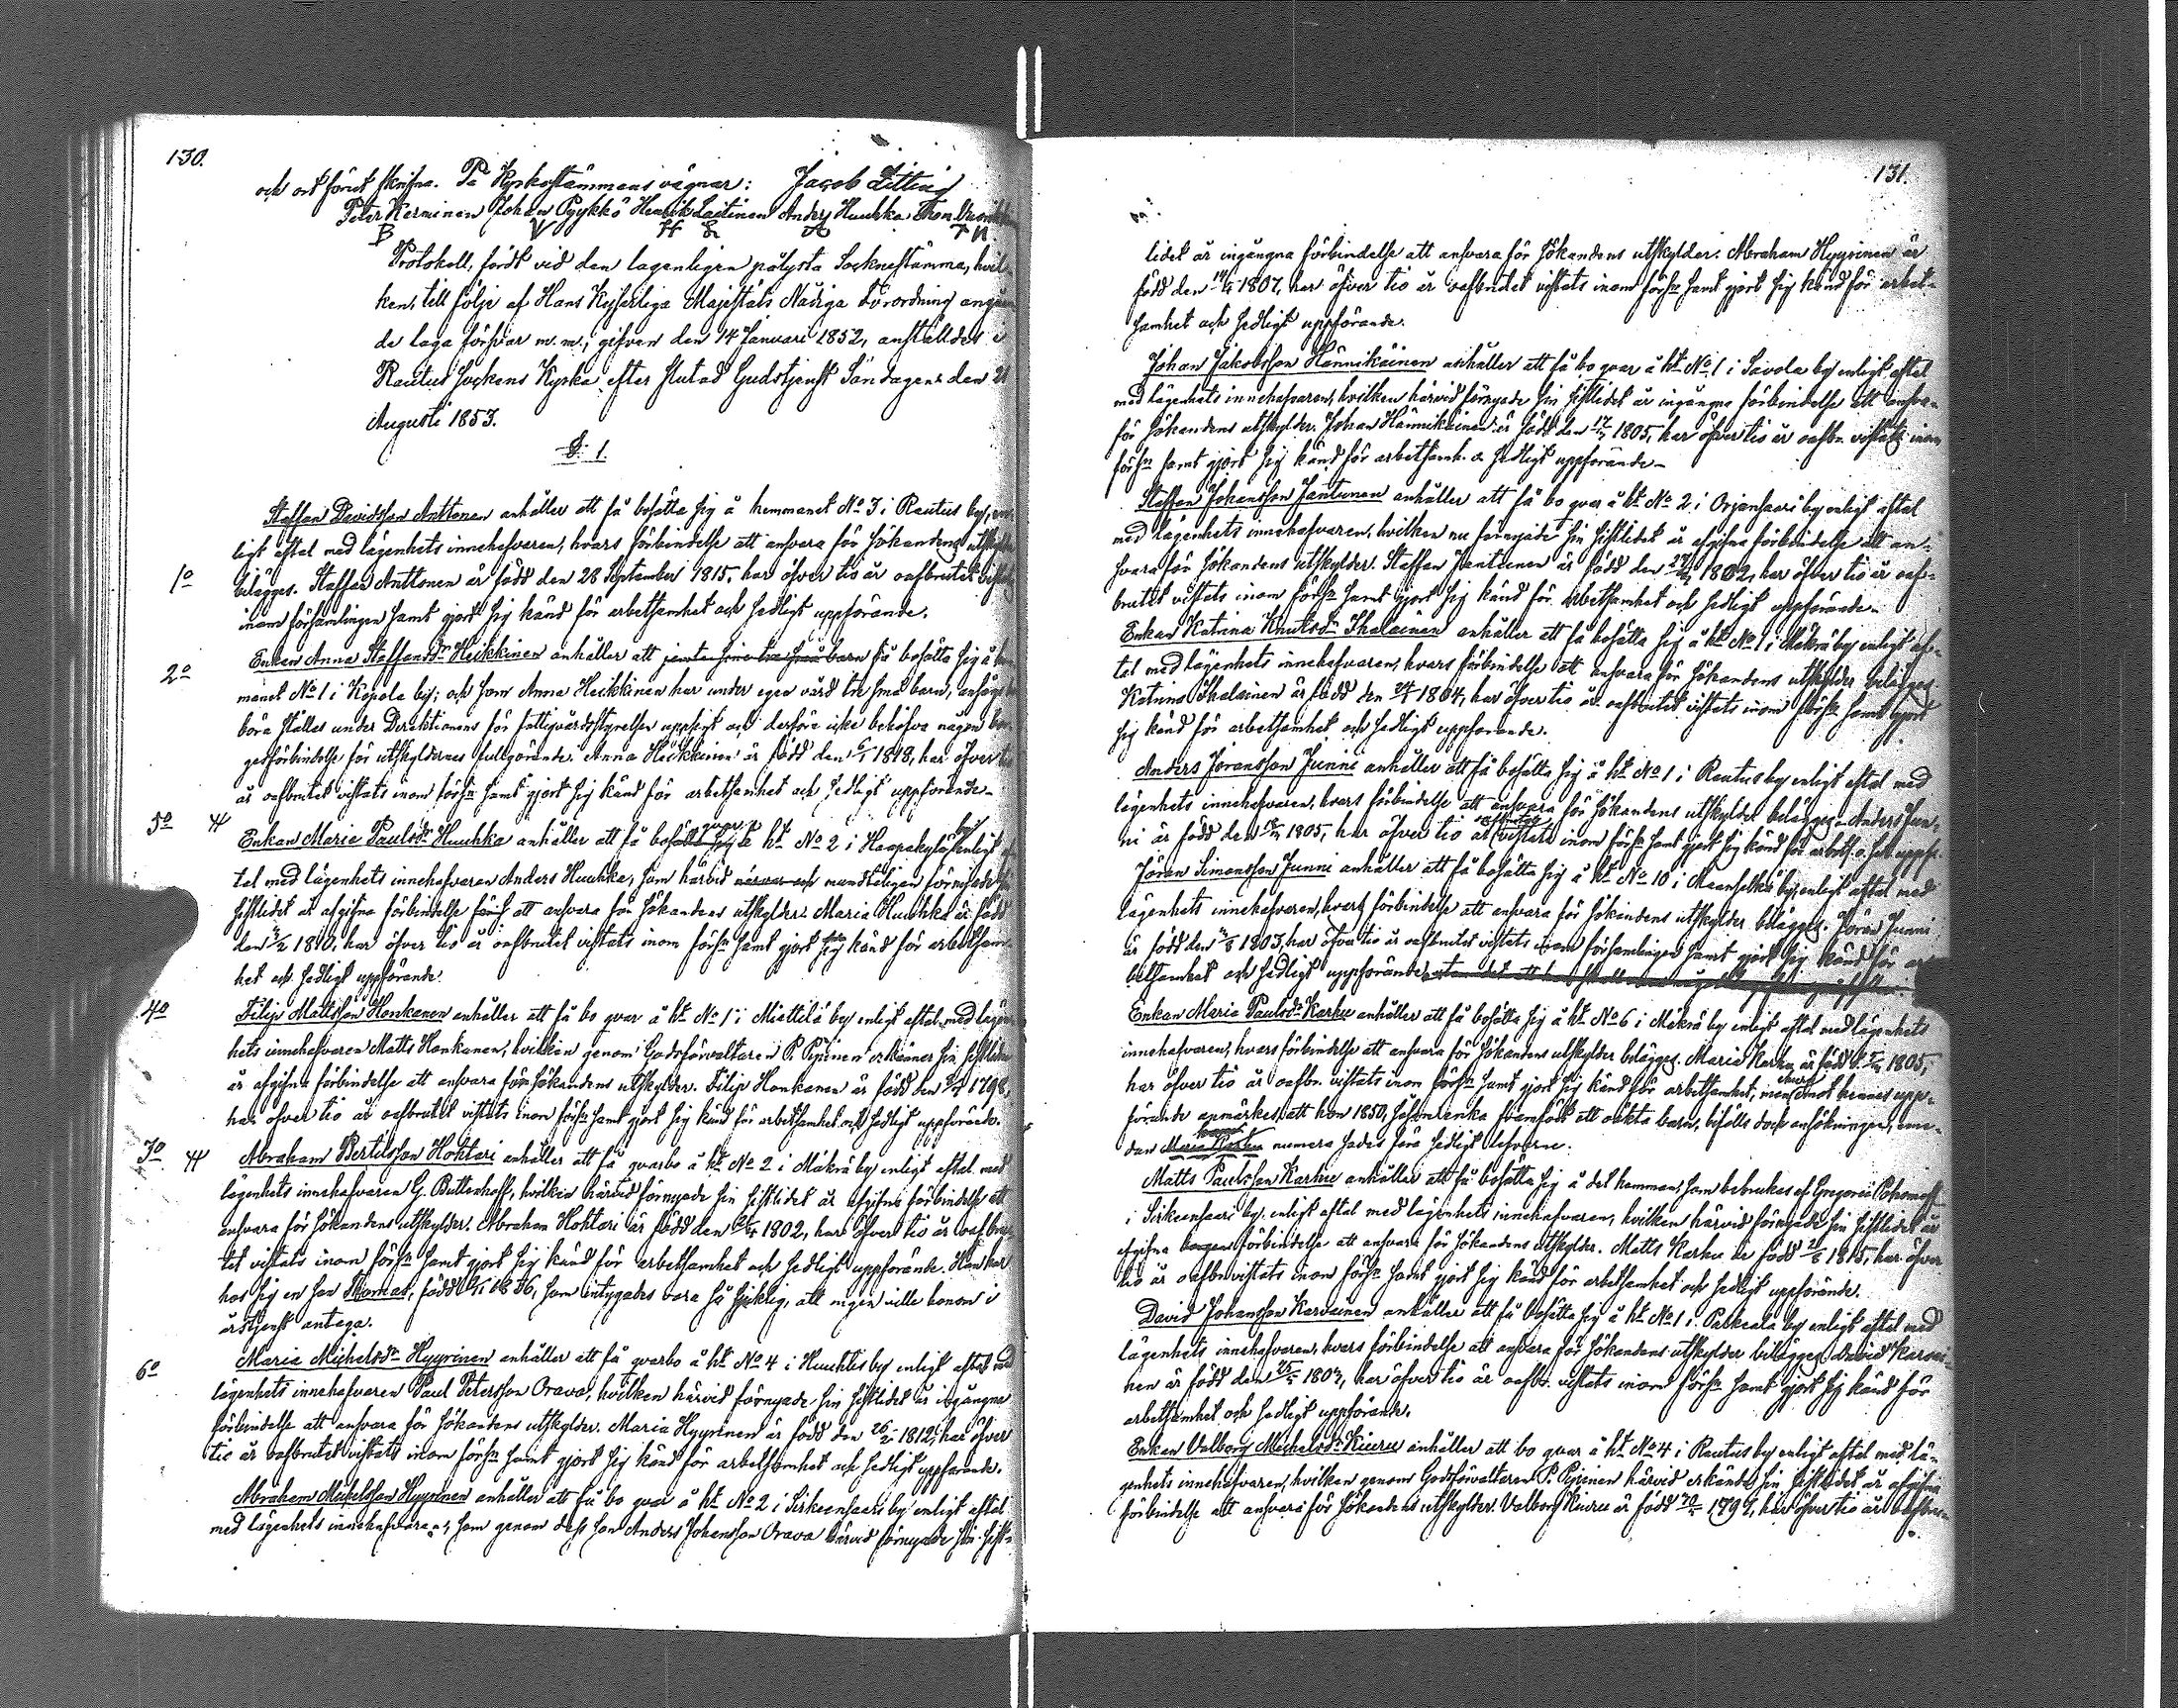 130.
och ort förut skrifna. På Kyrkostämmans vägnar: Jacob Zitting
Peter Kerminen Johan Pyykkö Henrik Laitinen Anders Huuhka Thom.
B V H L A T
Protokoll, fördt vid den lagenligen pålysta Sockenstämma, hvil-
ken, till följe af Hans Kejserliga Majestäts Nådiga Förordning angåen-
de laga försvar m. m., gifven den 14 Januari 1852, anställdes i
Rautus Sockens Kyrka efter slutad Gudstjenst Söndagen den 21
Augusti 1853.
§. 1.
Staffan Davidsson Anttonen anhåller att få bosätta sig å hemmanet No 3 i Rautus by, en-
ligt aftal med lägenhets innehafvaren, hvars förbindelse att ansvara för sökandens utskylder
1o bilägges. Staffan Anttonen är född den 28 September 1815, har öfver tio år oafbrutet vistats
inom församlingen samt gjort sig känd för arbetsamhet och sedligt uppförande.
Enkan Anna Staffansdr Heikkinen anhåller att jemte sina tre små barn få bosätta sig å hem-
2o manet No 1 i Kopola by; och som Anna Heikkinen har under egen vård tre små barn, ansågs
böra ställas under Direktionens för fattigvårdsstyrelsen uppsigt och derföre icke behöfva någon bor-
gesförbindelse för utskyldernes fullgörande. Anna Heikkinen är född den 1818, har öfver tio
år oafbrutet vistats inom förs:n samt gjort sig känd för arbetsamhet och sedligt uppförande.
3o Enkan Maria Paulsdr Huuhka anhåller att få bosätta sig qvar å ht No 2 i Haapakylä by enligt af-
tal med lägenhets innehafvaren Anders Huuhka, som härvid närvar och mundteligen förnyade sin
sistlidet år afgifna förbindelse att ansvara för sökandens utskylder. Maria Huuhka är född
den 1810, har öfver tio år oafbrutet vistats inom förs:n samt gjort sig känd för arbetsam-
het och sedligt uppförande.
4o Filip Mattsson Honkanen anhåller att få bo qvar å ht No 1 i Miettilä by enligt aftal med lägen-
hets innehafvaren Matts Honkanen, hvilken genom Godsförvaltaren P. Pyjinen erkänner sin sistlidet
år afgifna förbindelse att ansvara för sökandens utskylder. Filip Honkanen är född den 1798,
har öfver tio år oafbrutet vistats inom förs:n samt gjort sig känd för arbetsamhet och sedligt uppförande.
5o Abraham Bertilsson Hohtari anhåller att få qvarbo å ht No 2 i Mäkrä by enligt aftal med
lägenhets innehafvaren G. Buttenhoff, hvilken härvid förnyade sin sistlidet år afgifna förbindelse att
ansvara för sökandens utskylder. Abraham Hohtari är född den 1802, har öfver tio år oafbru-
tet vistats inom förs:n samt gjort sig känd för arbetsamhet och sedligt uppförande. Han har
hos sig en son Thomas, född 1836, som intygades vara så sjuklig, att ingen ville honom i
årstjenst antaga.
6o Maria Michelsdr Hyyrinen anhåller att få qvarbo å ht No 4 i Huuhtis by enligt aftal med
lägenhets innehafvaren Paul Petersson Orava, hvilken härvid förnyade sin sistlidet år ingångna
förbindelse att ansvara för sökandens utskylder. Maria Hyyrinen är född den 1812, har öfver
tio år oafbrutet vistats inom förs:n samt gjort sig känd för arbetsamhet och sedligt uppförande.
Abraham Mickelsson Hyyrinen anhåller att få bo qvar å ht No 2 i Sirkeensaari by enligt aftal
med lägenhets innehafvaren, som genom dess son Anders Johansson Orava härvid förnyade sin sist-
131.
lidet år ingångna förbindelse att ansvara för sökandens utskylder. Abraham Hyyrinen är
född den 1807, har öfver tio år oafbrutet vistats inom förs:n samt gjort sig känd för arbet-
samhet och sedligt uppförande.
Johan Jakobsson Hännikäinen anhåller att få bo qvar å ht No 1 i Savola by enligt aftal
med lägenhets innehafvaren, hvilken härvid förnyade sin sistlidet år ingångna förbindelse att ansva-
för sökandens utskylder. Johan Hännikäinen är född den 1805, har öfver tio år oafbr. vistats inom
förs:n samt gjort sig känd för arbetsamh. o sedligt uppförande.
Staffan Johansson Jantunen anhåller att få bo qvar å ht No 2 i Orjansaari by enligt aftal
med lägenhets innehafvaren, hvilken nu förnyade sin sistlidet år afgifna förbindelse att an-
svara för sökandens utskylder. Staffan Jantunen är född den 1802, har öfver tio år oaf-
brutet vistats inom förs:n samt gjort sig känd för arbetsamhet och sedligt uppförande.
Enkan Katrina Knutsdr Ihalainen anhåller att få bosätta sig å ht No 1 i Mäkrä by enligt af-
tal med lägenhets innehafvaren, hvars förbindelse att ansvara för sökandens utskylder bilägges.
Katrina Ihalainen är född den 1804, har öfver tio år oafbrutet vistats inom förs:n samt gjort
sig känd för arbetsamhet och sedligt uppförande.
Anders Jöransson Junni anhåller att få bosätta sig å ht No 1 i Rautus by enligt aftal med
lägenhets innehafvaren, hvars förbindelse att ansvara för sökandens utskylder bilägges. Anders Jun-
ni är född den 1805, har öfver tio år oafbrutet vistats inom förs:n samt gjort sig känd för arbets. o. sedl. uppfö.
Jöran Simonsson Junni anhåller att få bosätta sig å ht No 10 i Maanselkä by, enligt aftal med
lägenhets innehafvaren, hvars förbindelse att ansvara för sökandens utskylder bilägges. Jöran Junni
är född den 1803, har öfver tio år oafbrutet vistats inom församlingen samt gjort sig känd för ar-
betsamhet och sedligt uppförande
Enkan Maria Paulsdr Karhu anhåller att få bosätta sig å ht No 6 i Mäkrä by enligt aftal med lägenhets
innehafvaren, hvars förbindelse att ansvara för sökandens utskylder bilägges. Maria Karhu är född d. 1805,
har öfver tio år oafbr. vistats inom förs:n samt gjort sig känd för arbetsamhet, men emot hennes upp-
förande anmärkes, att hon 1850, såsom enka framfödt ett oäkta barn, bifölls dock ansökningen, eme-
dan Maria Karhu numera sades föra sedligt lefverne.
Matts Paulsson Karhu anhåller att få bosätta sig å det hemman, som bebrukas af Gregorei Pahomoff
i Sirkeensaari by, enligt aftal med lägenhets innehafvaren, hvilken härvid förnyade sin sistlidet år
afgifna borgens förbindelse att ansvara för sökandens utskylder. Matts Karhu är född 1815, har öfver
tio år oafbr. vistats inom förs:n samt gjort sig känd för arbetsamhet och sedligt uppförande.
David Johansson Karvainen anhåller att få bosätta sig å ht No 1 i Palkeala by enligt aftal med
lägenhets innehafvaren, hvars förbindelse att ansvara för sökandens utskylder bilägges. David Karvai-
nen är född den 1803, har öfver tio år oafbr. vistats inom förs:n samt gjort sig känd för
arbetsamhet och sedligt uppförande.
Enkan Valborg Michelsdr Kiuru anhåller att bo qvar å ht No 4 i Rautus by enligt aftal med lä-
genhets innehafvaren, hvilken genom Godsförvaltaren P. Pyjinen härvid erkände sin sistlidet år afgifna
förbindelse att ansvara för sökandens utskylder. Valborg Kiuru är född 1797, har öfver tio år oafbru-